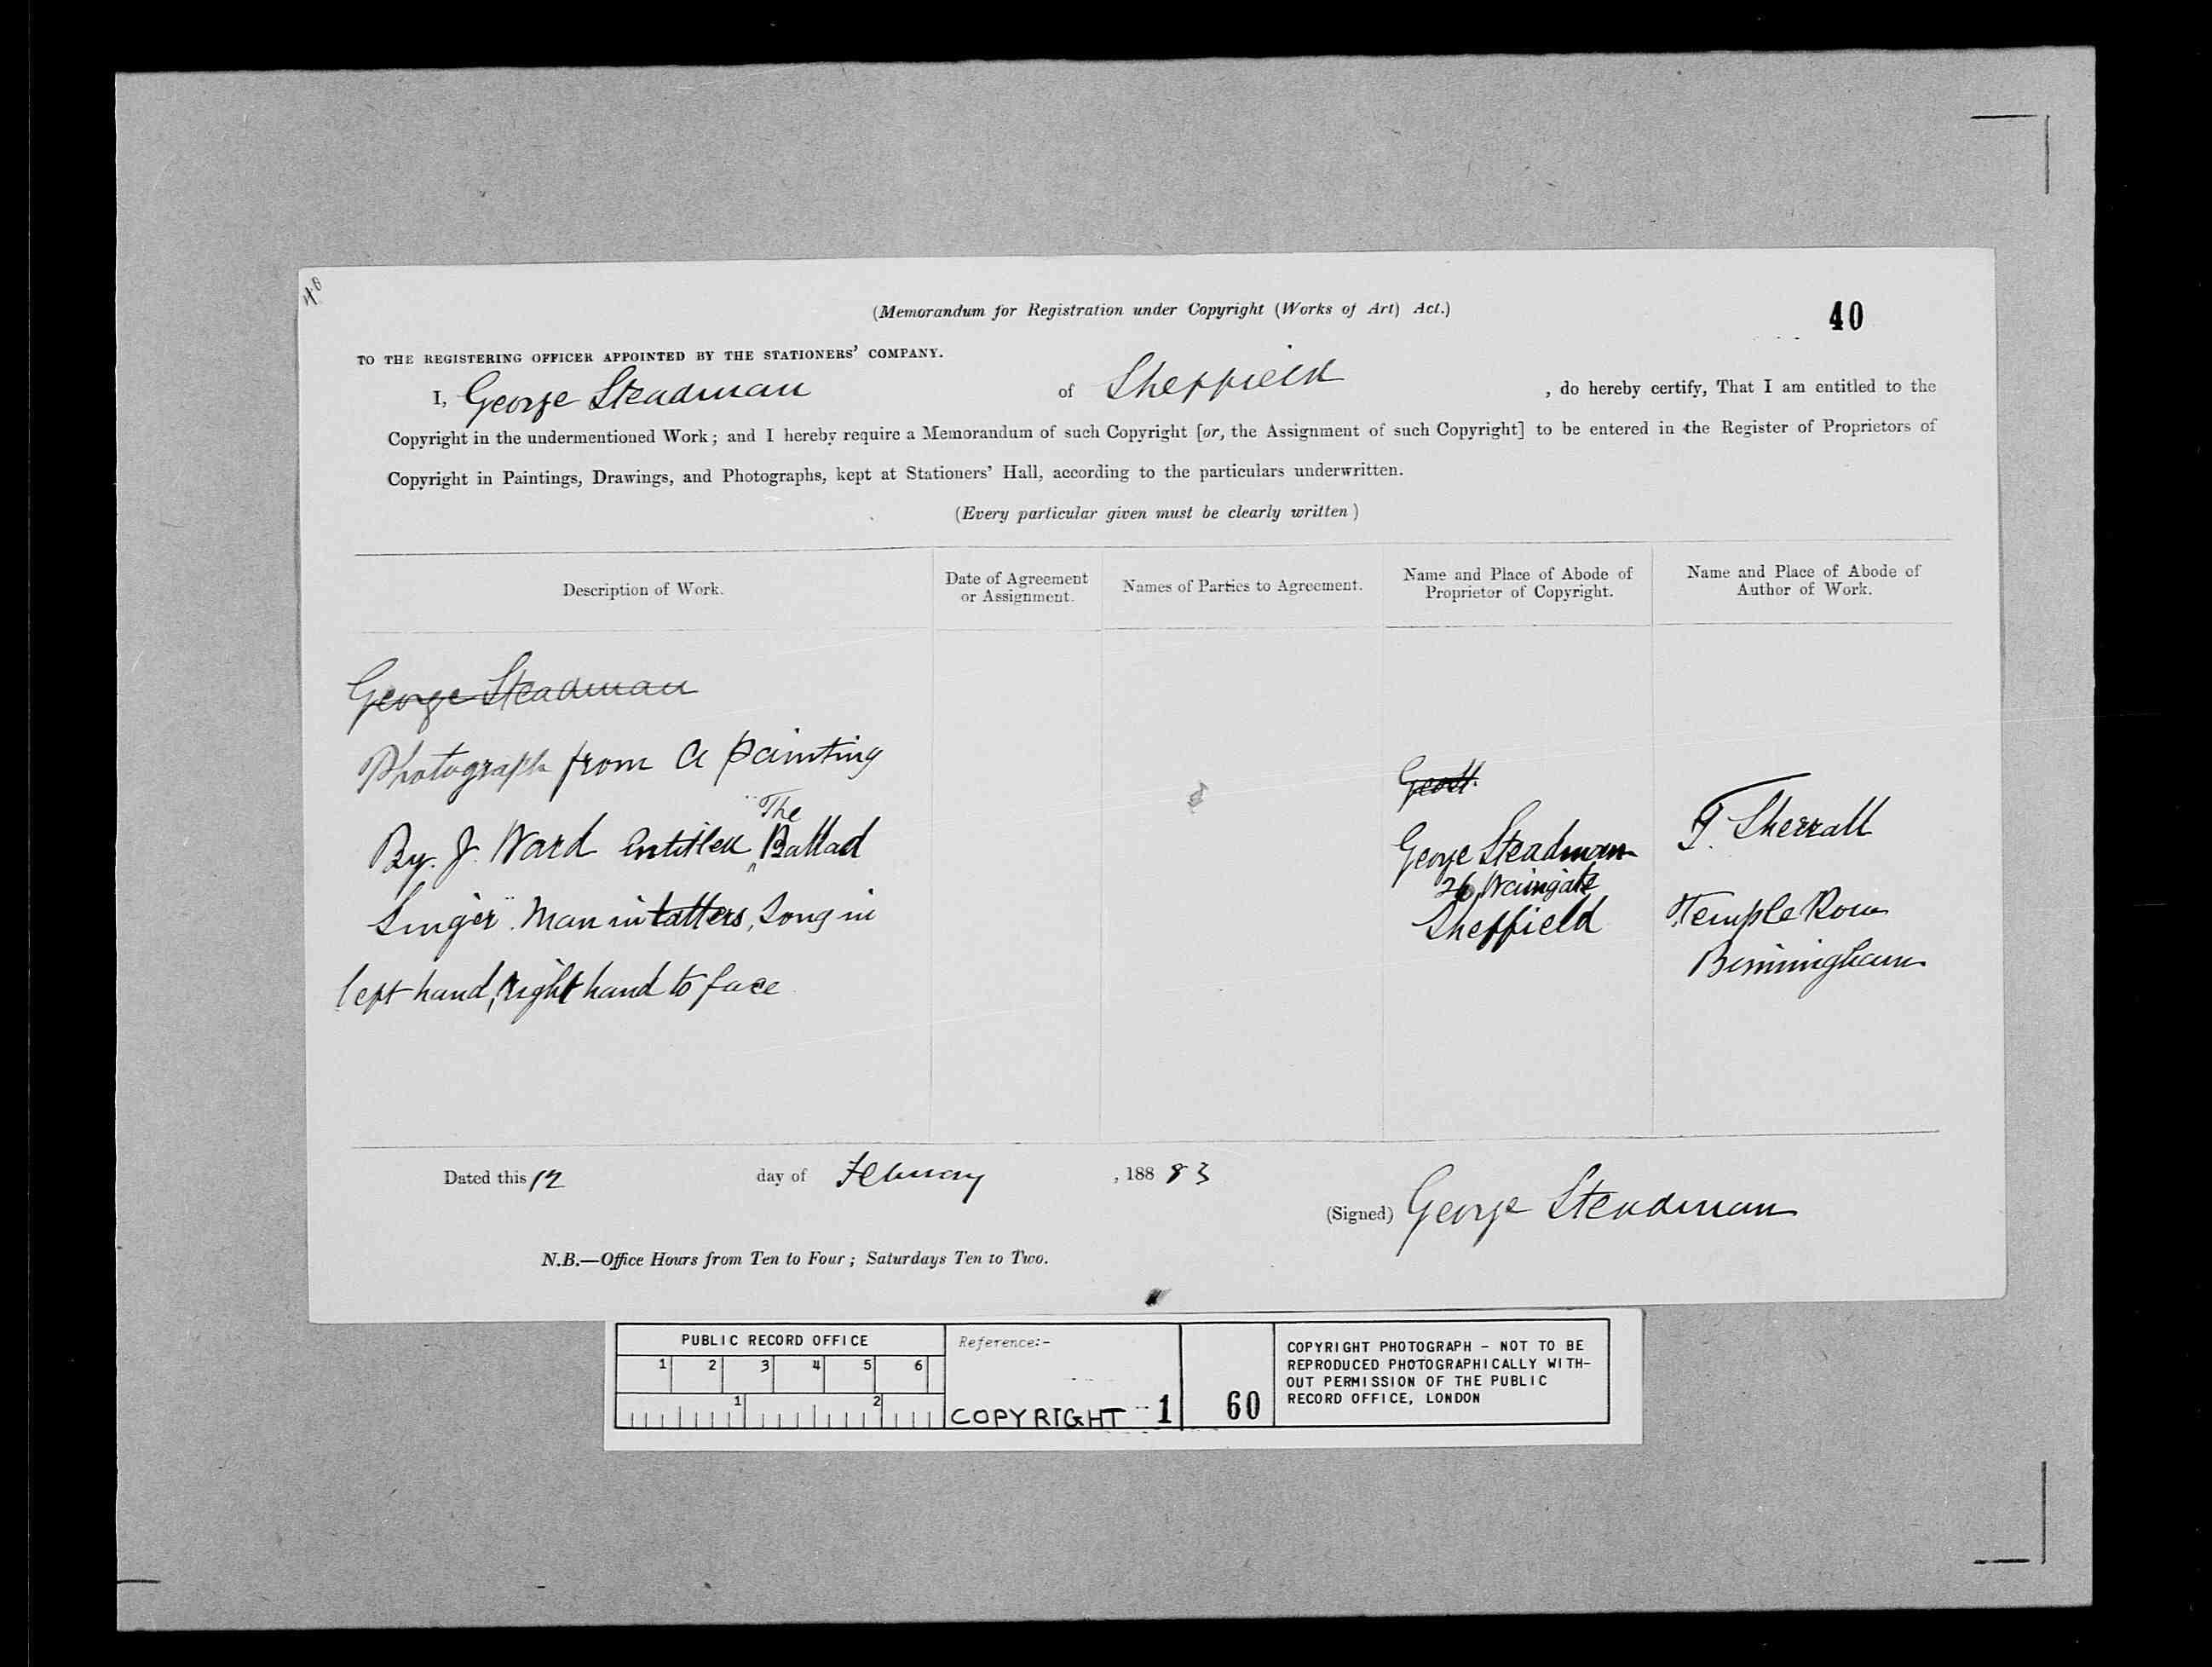 40
(Memorandum for Registration under Copyright (Works of Art) Act.)
40
TO THE REGISTERING OFFICER APPOINTED BY THE STATIONERS' COMPANY.
I, George Steadman of Sheffield , do hereby certify, That I am entitled to the
Copyright in the undermentioned Work; and I hereby require a Memorandum of such Copyright [or, the Assignment of such Copyright] to be entered in the Register of Proprietors of
Copyright in Paintings, Drawings, and Photographs, kept at Stationers' Hall, according to the particulars underwritten.
(Every particular given must be clearly written)
Description of Work.
Date of Agreement
or Assignment.
Names of Parties to Agreement.
Name and Place of Abode of
Proprietor of Copyright.
Name and Place of Abode of
Author of Work.
George Steadman
Photograph from a painting
By. J. Ward Entitled "The Ballad
Singer". Man in tatters, Song in
left hand, right hand to face
George Steadman
26 Waingate
Sheffield
T. Sherratt
Temple Row
Birmingham
Dated this 12 day of February , 188 83
(Signed) George Steadman
N.B.—Office Hours from Ten to Four; Saturdays Ten to Two.
PUBLIC RECORD OFFICE
1 2 3 4 5 6
1 2
Reference:-
COPYRIGHT 1
60
COPYRIGHT PHOTOGRAPH - NOT TO BE
REPRODUCED PHOTOGRAPHICALLY WITH-
OUT PERMISSION OF THE PUBLIC
RECORD OFFICE, LONDON